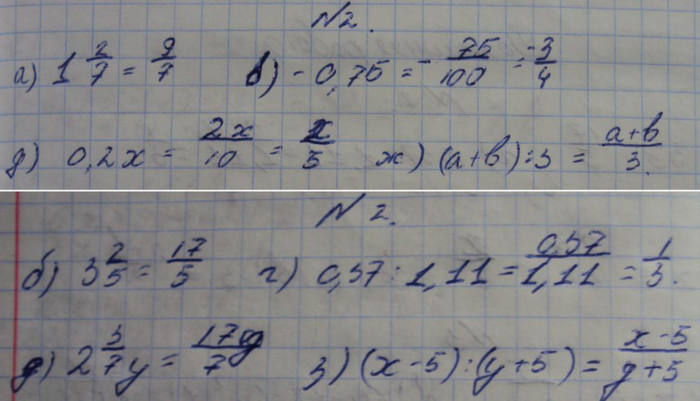 №2.
а) 1 2/7 = 9/7 в) -0,75 = - 75/100 = -3/4
д) 0,2x = 2x/10 = x/5 ж) (a+b):3 = a+b/3.
№2.
б) 3 2/5 = 17/5 г) 0,37:1,11 = 0,37/1,11 = 1/3.
д) 2 3/7 y = 17y/7 з) (x-5):(y+5) = x-5/y+5